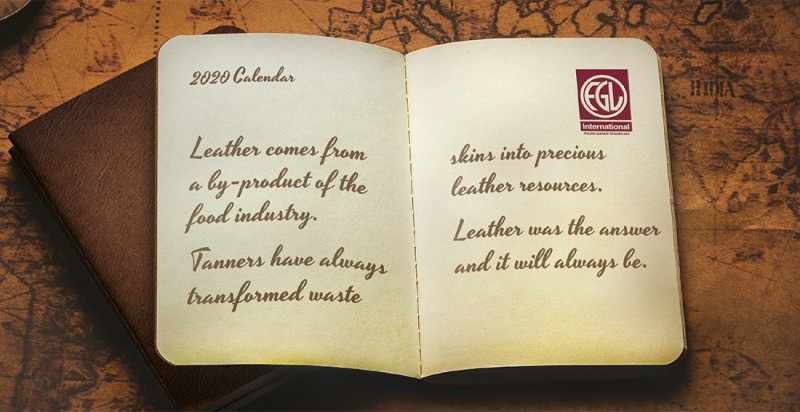 2020 Calendar
Leather comes from
a by-product of the
food industry.
Tanners have always
transformed waste
FGL
International
skins into precious
leather resources.
Leather was the answer
and it will always be.
INDIA